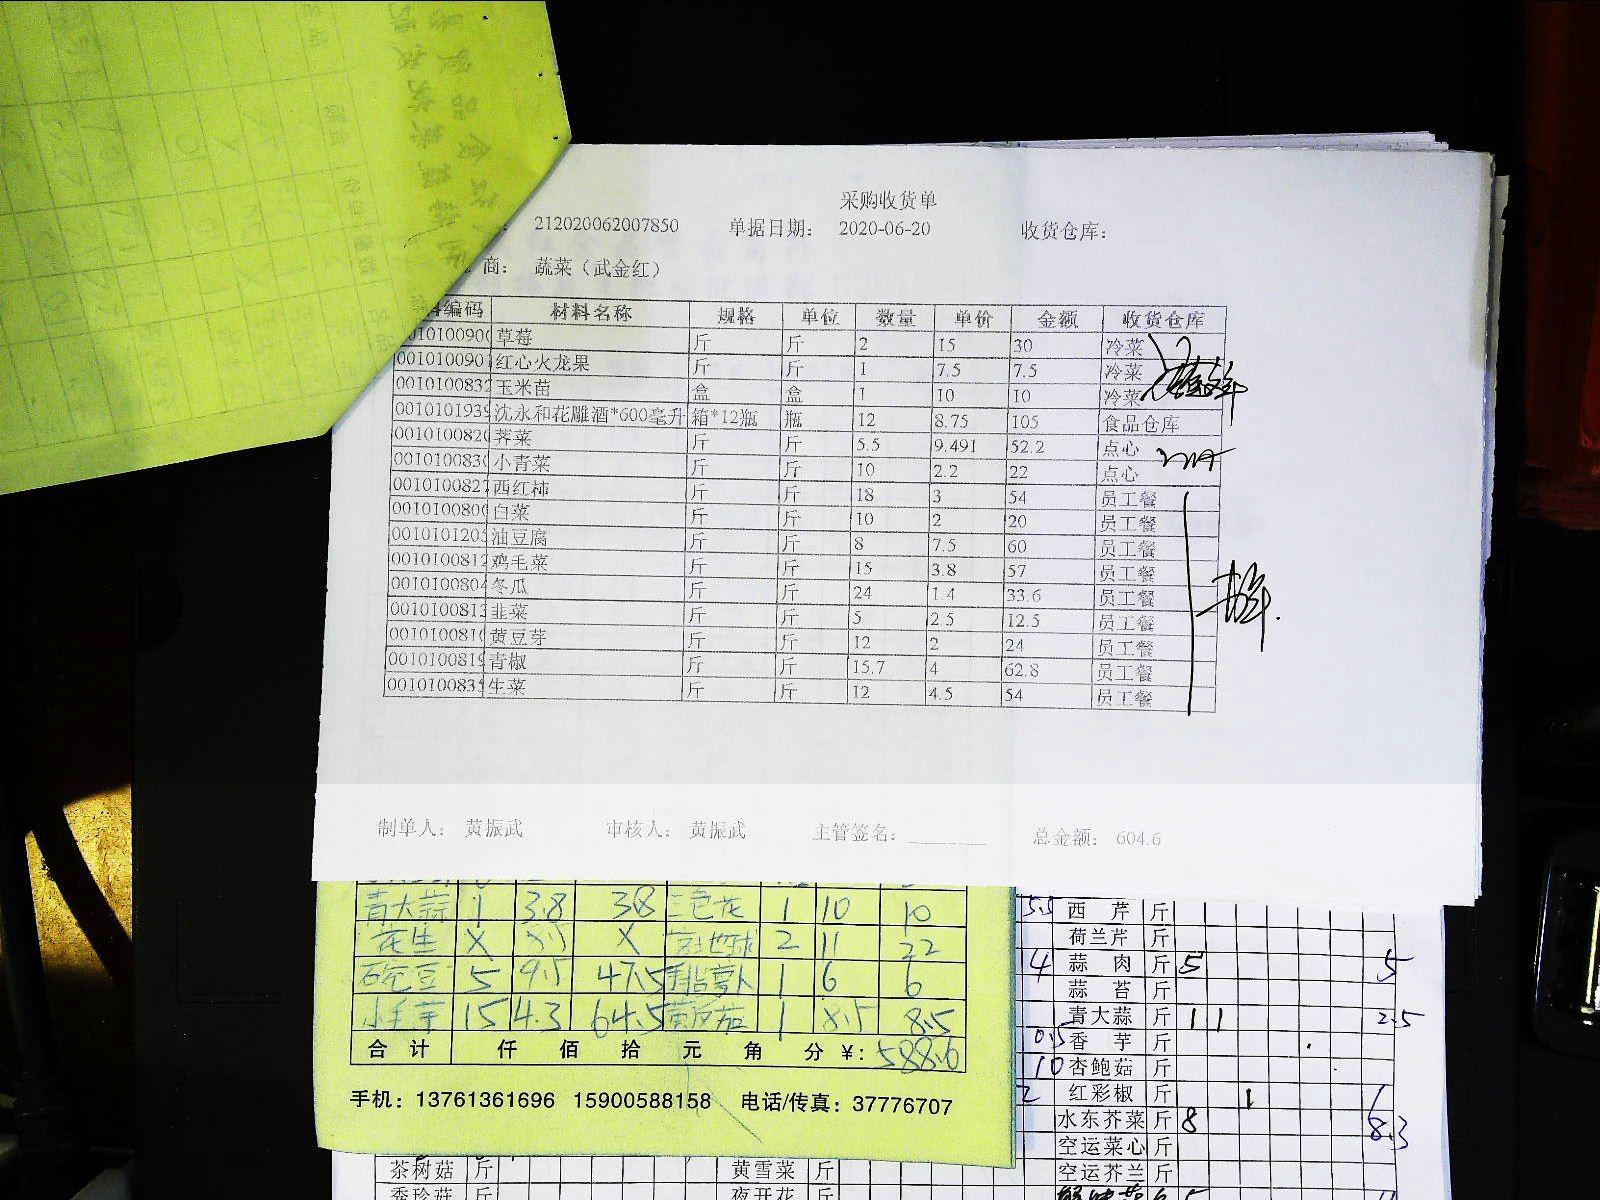 采购收货单
212020062007850 单据日期: 2020-06-20 收货仓库:
商: 蔬菜（武金红）
编码 材料名称 规格 单位 数量 单价 金额 收货仓库
草莓 斤 斤 2 15 30 冷菜
001010090 红心火龙果 斤 斤 1 7.5 7.5 冷菜
001010083 玉米苗 盒 盒 1 10 10 冷菜
001010193 沈永和花雕酒*600毫升 箱*12瓶 瓶 12 8.75 105 食品仓库
001010082 荠菜 斤 斤 5.5 9.491 52.2 点心
001010083 小青菜 斤 斤 10 2.2 22 点心
001010082 西红柿 斤 斤 18 3 54 员工餐
001010080 白菜 斤 斤 10 2 20 员工餐
001010120 油豆腐 斤 斤 8 7.5 60 员工餐
001010081 鸡毛菜 斤 斤 15 3.8 57 员工餐
001010080 冬瓜 斤 斤 24 1.4 33.6 员工餐
001010081 韭菜 斤 斤 5 2.5 12.5 员工餐
001010081 黄豆芽 斤 斤 12 2 24 员工餐
001010081 青椒 斤 斤 15.7 4 62.8 员工餐
001010083 生菜 斤 斤 12 4.5 54 员工餐
制单人: 黄振武 审核人: 黄振武 主管签名: 总金额: 604.6
青大蒜 1 3.8 38 三色花 1 10 10
花生 X X 2 11 22
豆 5 9.5 47.5 手指萝卜 1 6 6
小毛芋 15 4.3 64.5 黄番茄 1 8.5 8.5
合计 仟 佰 拾 元 角 分 ¥: 588.6
手机: 13761361696 15900588158 电话/传真: 37776707
5.5 西芹 斤
荷兰芹 斤
4 蒜肉 斤 5 5
蒜苔 斤
青大蒜 斤 1 1 2.5
0.5 香芋 斤
10 杏鲍菇 斤
2 红彩椒 斤 1 1
水东芥菜 斤 8 8.3
空运菜心 斤
空运芥兰 斤
茶树菇 斤 黄雪菜 斤
秀珍菇 斤 夜开花 斤